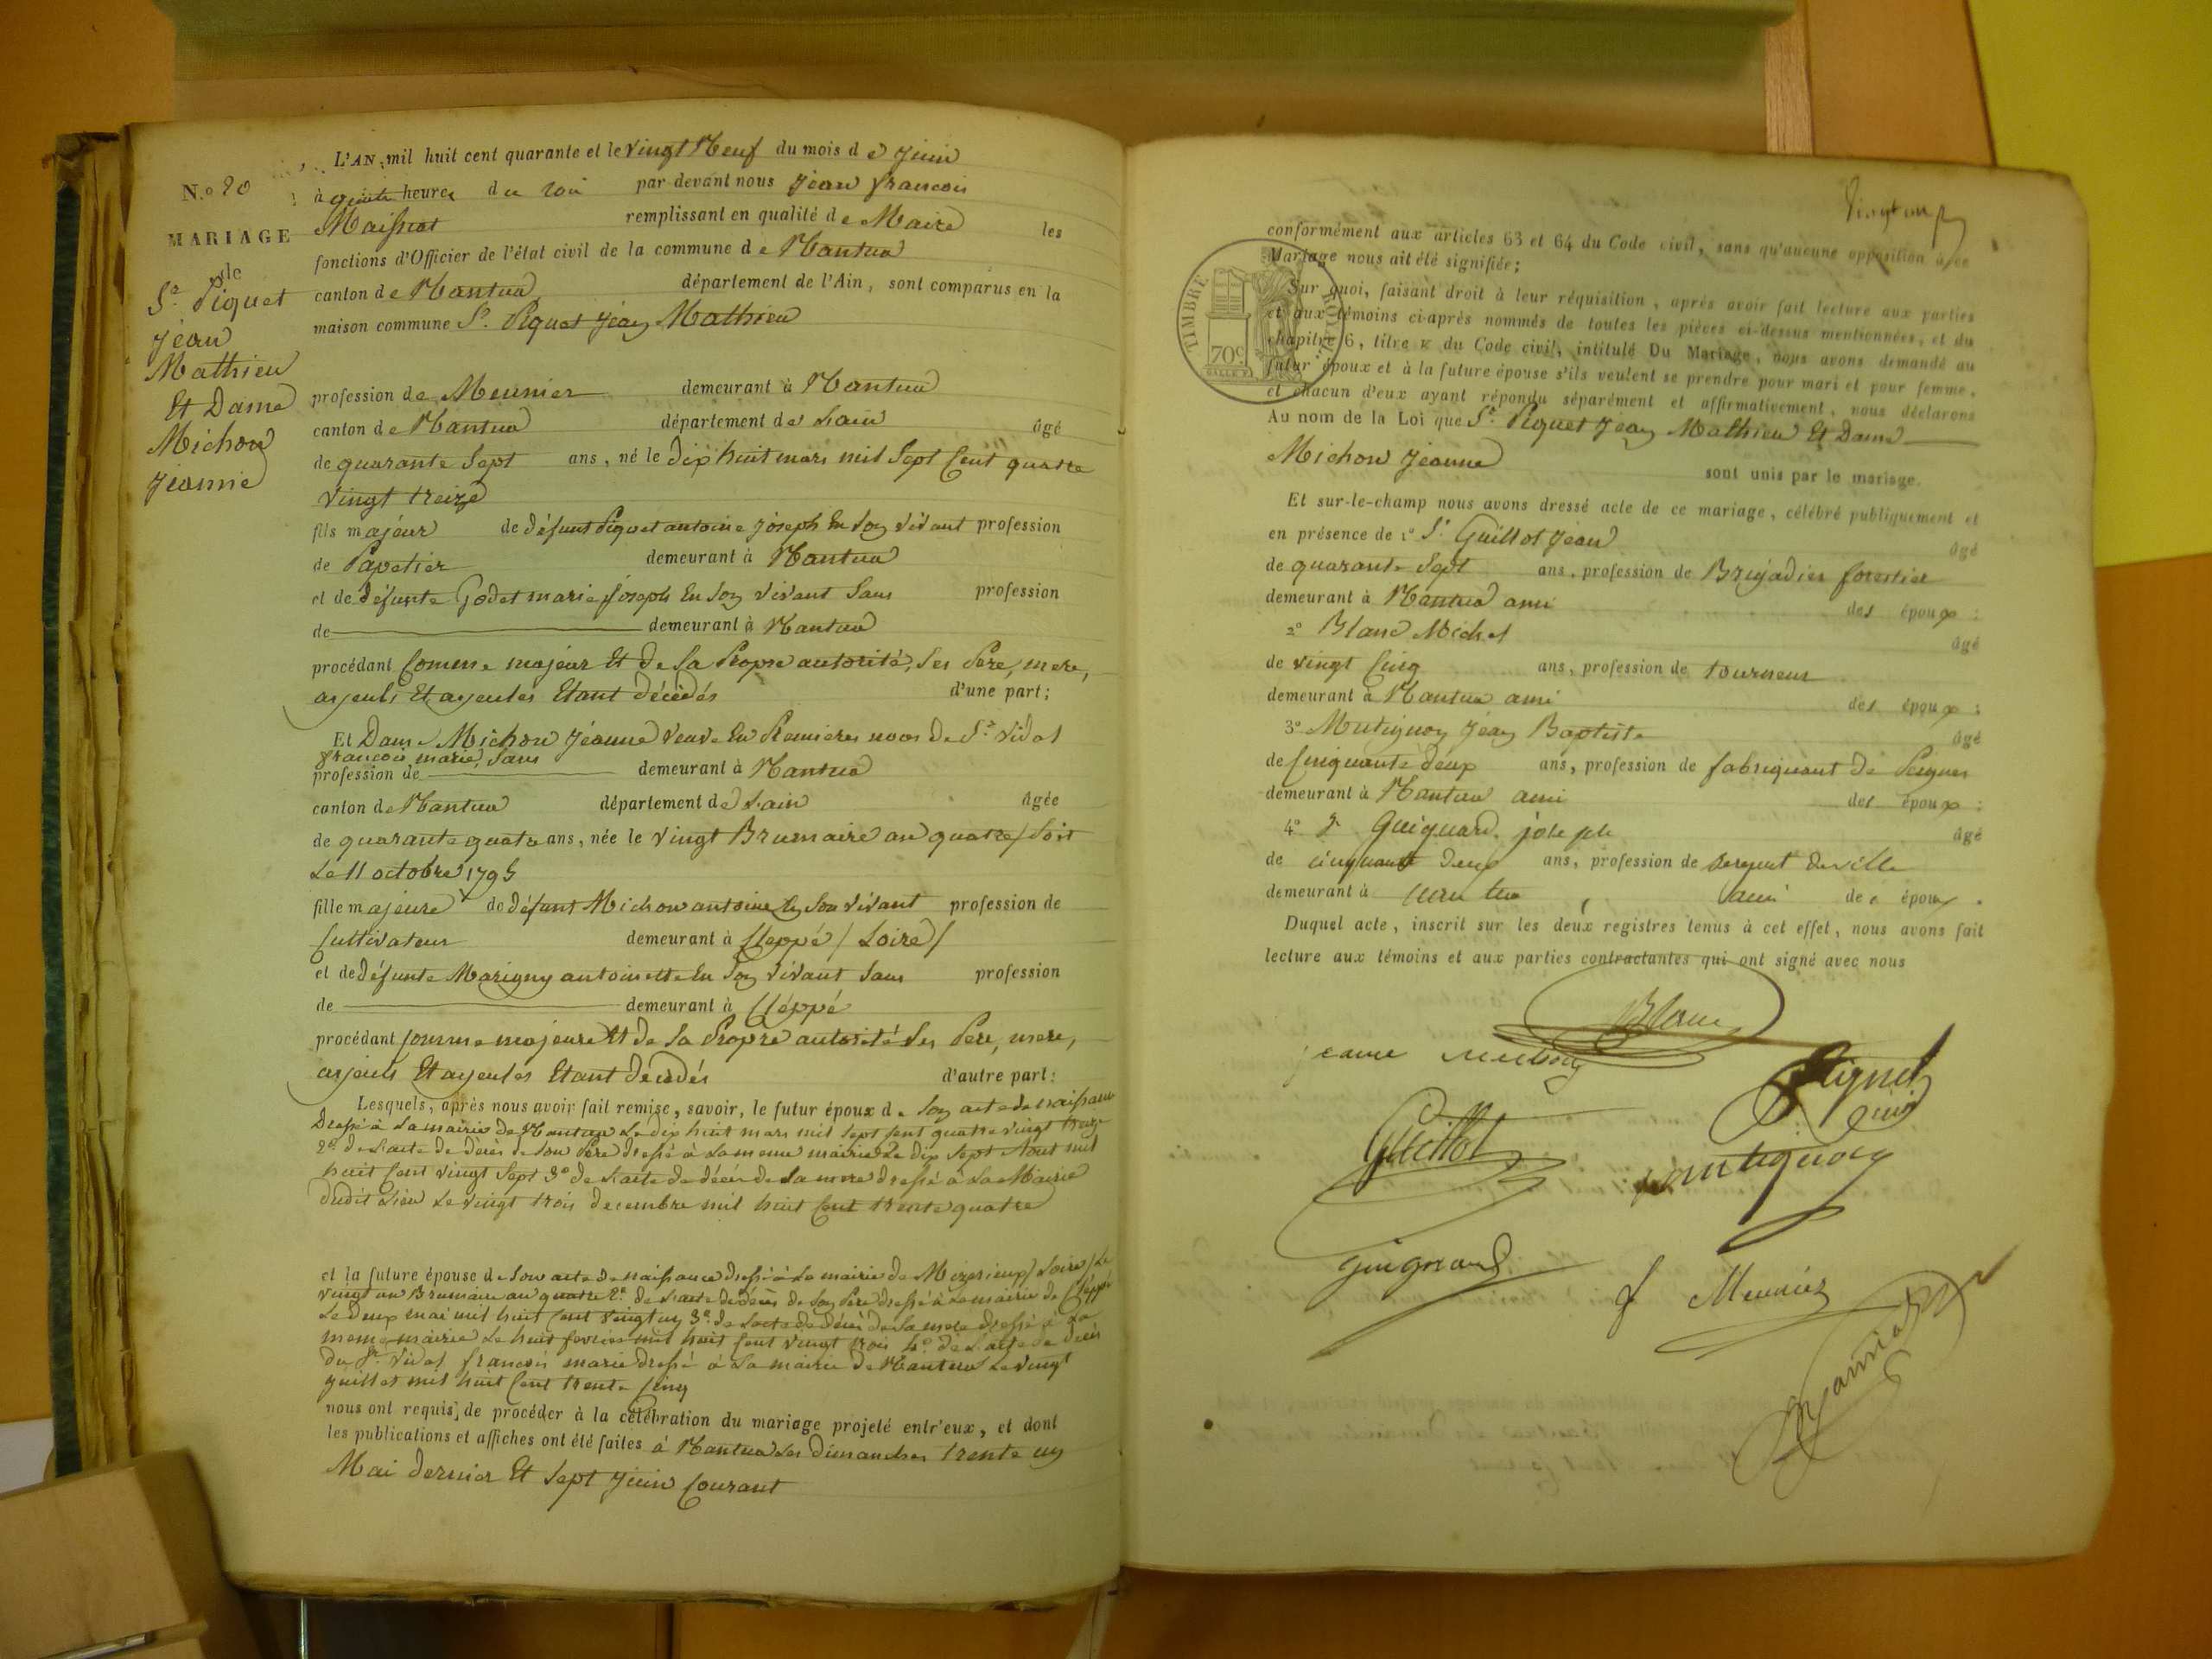 N.o 20
MARIAGE
de
Sr. Piquet
Jean
Mathieu
Et Dame
Michon
Jeanne
L'AN mil huit cent quarante et le vingt Neuf du mois de Juin
à heures du soir par devant nous Jean françois
Maissiat remplissant en qualité de Maire les
fonctions d'Officier de l'état civil de la commune de Nantua
canton de Nantua département de l'Ain, sont comparus en la
maison commune Sr. Piquet Jean Mathieu
profession de Meunier demeurant à Nantua
canton de Nantua département de Lain âgé
de quarante Sept ans, né le dix huit mars mil Sept Cent quatre
vingt treize
fils majeur de défunt Piquet antoine Joseph En Son vivant profession
de Papetier demeurant à Nantua
et de défunte Godet marie Joseph En Son vivant Sans profession
de demeurant à Nantua
procédant Comme majeur Et de Sa Propre autorité, Ses Père, mere,
ayeuls Et ayeules Etant décédés d'une part;
Et Dame Michon Jeanne veuve En Premieres noces De Sr. Vidal
françois marie, Sans
profession de demeurant à Nantua
canton de Nantua département de Lain âgée
de quarante quatre ans, née le vingt Brumaire an quatre / Soit
Le 11 octobre 1795
fille majeure de défunt Michon antoine En Son vivant profession de
Cultivateur demeurant à Cleppé / Loire /
et de défunte Marigny antoinette En Son vivant Sans profession
de demeurant à Cléppé
procédant Comme majeure Et de Sa Propre autorité Ses Pere, mere,
ayeuls Et ayeules Etant décédés d'autre part:
Lesquels, après nous avoir fait remise, savoir, le futur époux de Son acte de naissance
Dressé à La mairie de Nantua Le dix huit mars mil Sept Cent quatre vingt treize
2o. de L'acte de décès de Son Père dressé à La meme mairie Le dix Sept Aout mil
huit Cent vingt Sept 3o de L'acte de décès de Sa mere dressé à La Mairie
dudit Lieu Le vingt trois decembre mil huit Cent trente quatre
et la future épouse de Son acte de naissance dressé à La mairie de Mizerieux / Loire / Le
vingt un Brumaire an quatre 2o. de L'acte de décès de Son Père dressé à La mairie de Cleppé
Le deux mai mil huit Cent vingt un 3o. de L'acte de décès de Sa mere dressé à La
meme mairie Le huit fevrier mil huit Cent vingt trois 4o. de L'acte de décès
du Sr. Vidal françois marie dressé à La mairie de Nantua Le vingt
Juillet mil huit Cent trente Cinq
nous ont requis, de procéder à la célébration du mariage projeté entr'eux, et dont
les publications et affiches ont été faites à Nantua Les dimanches trente un
Mai dernier Et Sept Juin Courant
conformément aux articles 63 et 64 du Code civil, sans qu'aucune opposition à ce
Mariage nous ait été signifiée;
TIMBRE ROYAL
70c.
Sur quoi, faisant droit à leur réquisition, après avoir fait lecture aux parties
et aux témoins ci-après nommés de toutes les pièces ci-dessus mentionnées, et du
chapitre 6, titre v du Code civil, intitulé Du Mariage, nous avons demandé au
futur époux et à la future épouse s'ils veulent se prendre pour mari et pour femme,
et chacun d'eux ayant répondu séparément et affirmativement, nous déclarons
Au nom de la Loi que Sr. Piquet Jean Mathieu Et Dame
Michon Jeanne sont unis par le mariage.
Et sur-le-champ nous avons dressé acte de ce mariage, célébré publiquement et
en présence de 1o Sr. Guillot Jean âgé
de quarante Sept ans, profession de Brigadier forestier
demeurant à Nantua ami des époux:
2o Blanc Michel âgé
de vingt Cinq ans, profession de tourneur
demeurant à Nantua ami des époux:
3o Mutignon Jean Baptiste âgé
de Cinquante deux ans, profession de fabriquant de Peignes
demeurant à Nantua ami des époux:
4o Sr Guignard joseph âgé
de cinquante deux ans, profession de sergent de ville
demeurant à nantua, ami des époux.
Duquel acte, inscrit sur les deux registres tenus à cet effet, nous avons fait
lecture aux témoins et aux parties contractantes qui ont signé avec nous
Blanc
jeanne michon
Piquet
Guillot
mutignon
guignard
J Meunier